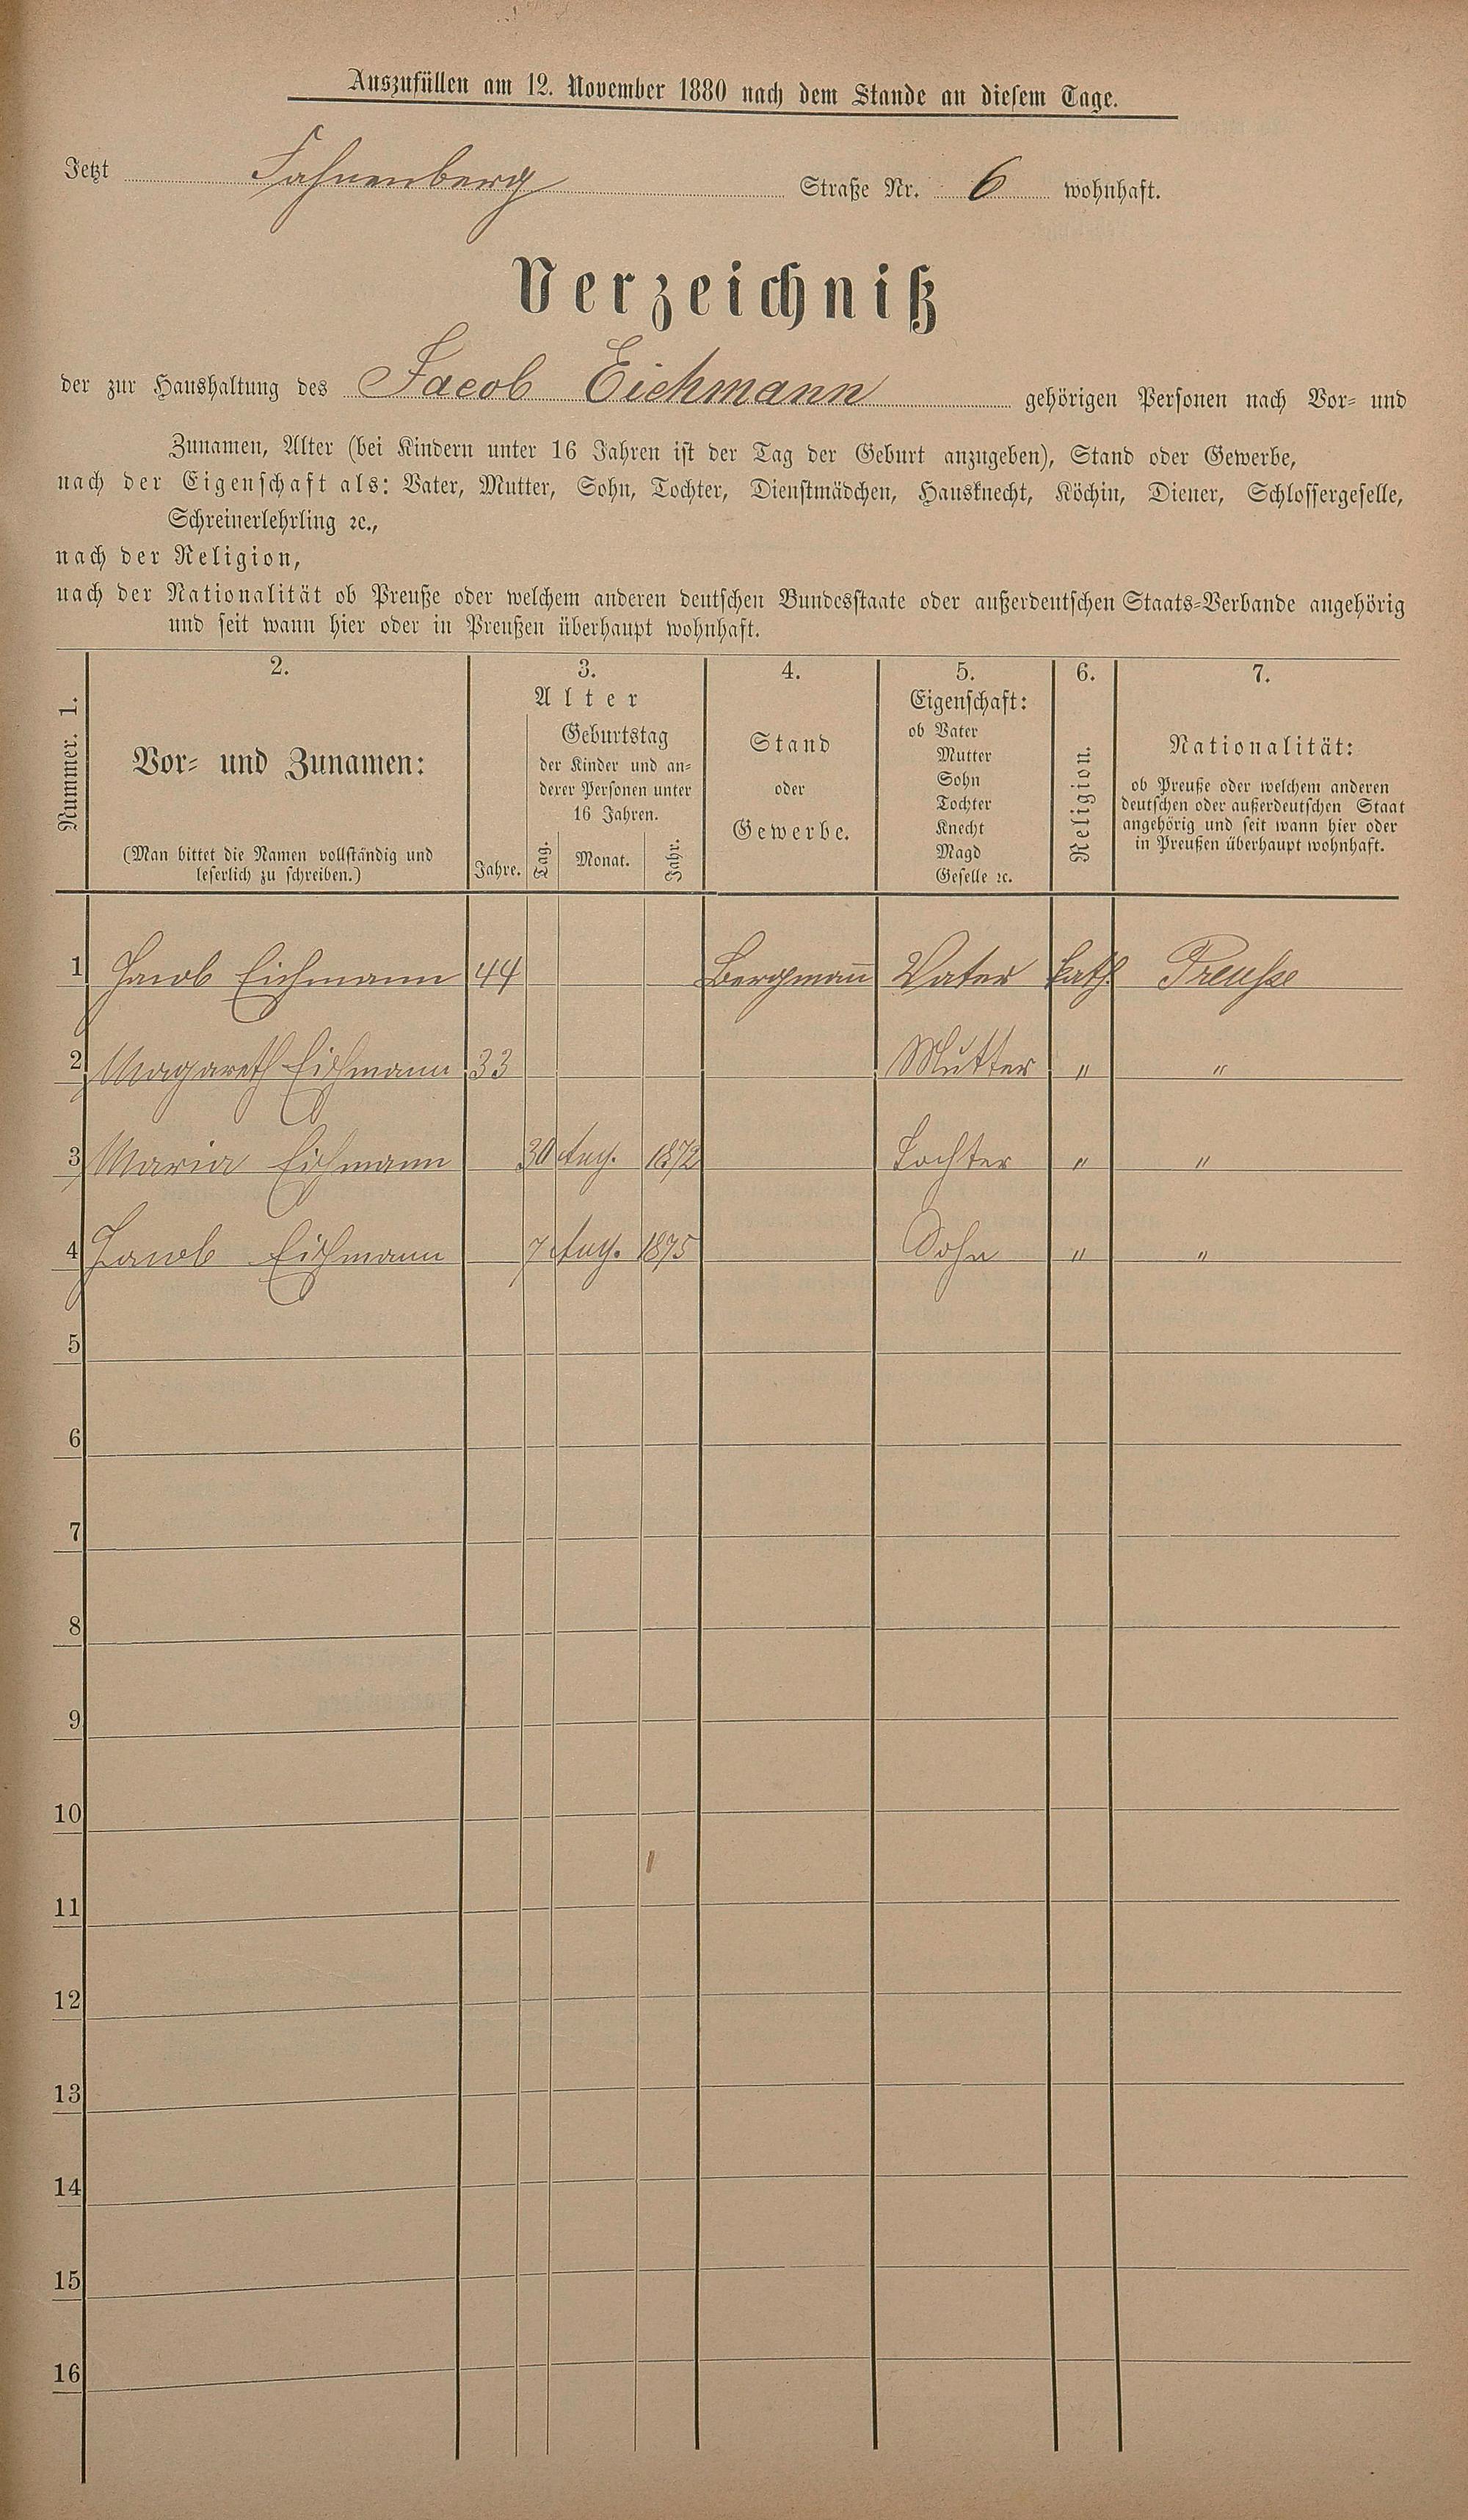 Auszufüllen am 12. November 1880 nach dem Stande an diesem Tage.
Jetzt Fahnenberg Straße Nr. 6 wohnhaft.
Verzeichniß
der zur Haushaltung des Jacob Eichmann gehörigen Personen nach Vor- und
Zunamen, Alter (bei Kindern unter 16 Jahren ist der Tag der Geburt anzugeben), Stand oder Gewerbe,
nach der Eigenschaft als: Vater, Mutter, Sohn, Tochter, Dienstmädchen, Hausknecht, Köchin, Diener, Schlossergeselle,
Schreinerlehrling ꝛc.,
nach der Religion,
nach der Nationalität ob Preuße oder welchem anderen deutschen Bundesstaate oder außerdeutschen Staats-Verbande angehörig
und seit wann hier oder in Preußen überhaupt wohnhaft.
Nummer. 1.
2.
Vor- und Zunamen:
(Man bittet die Namen vollständig und
leserlich zu schreiben.)
3.
Alter
Jahre.
Geburtstag
der Kinder und an-
derer Personen unter
16 Jahren.
Tag. Monat. Jahr.
4.
Stand
oder
Gewerbe.
5.
Eigenschaft:
ob Vater
Mutter
Sohn
Tochter
Knecht
Magd
Geselle ꝛc.
6.
Religion.
7.
Nationalität:
ob Preuße oder welchem anderen
deutschen oder außerdeutschen Staat
angehörig und seit wann hier oder
in Preußen überhaupt wohnhaft.
1 Jacob Eichmann 44 Bergmañ Vater kath. Preuße
2 Magareth Eichmann 33 Mutter " "
3 Maria Eichmann 30 Aug. 1872 Tochter " "
4 Jacob Eichmann 7 Aug. 1875 Sohn " "
5
6
7
8
9
10
11
12
13
14
15
16